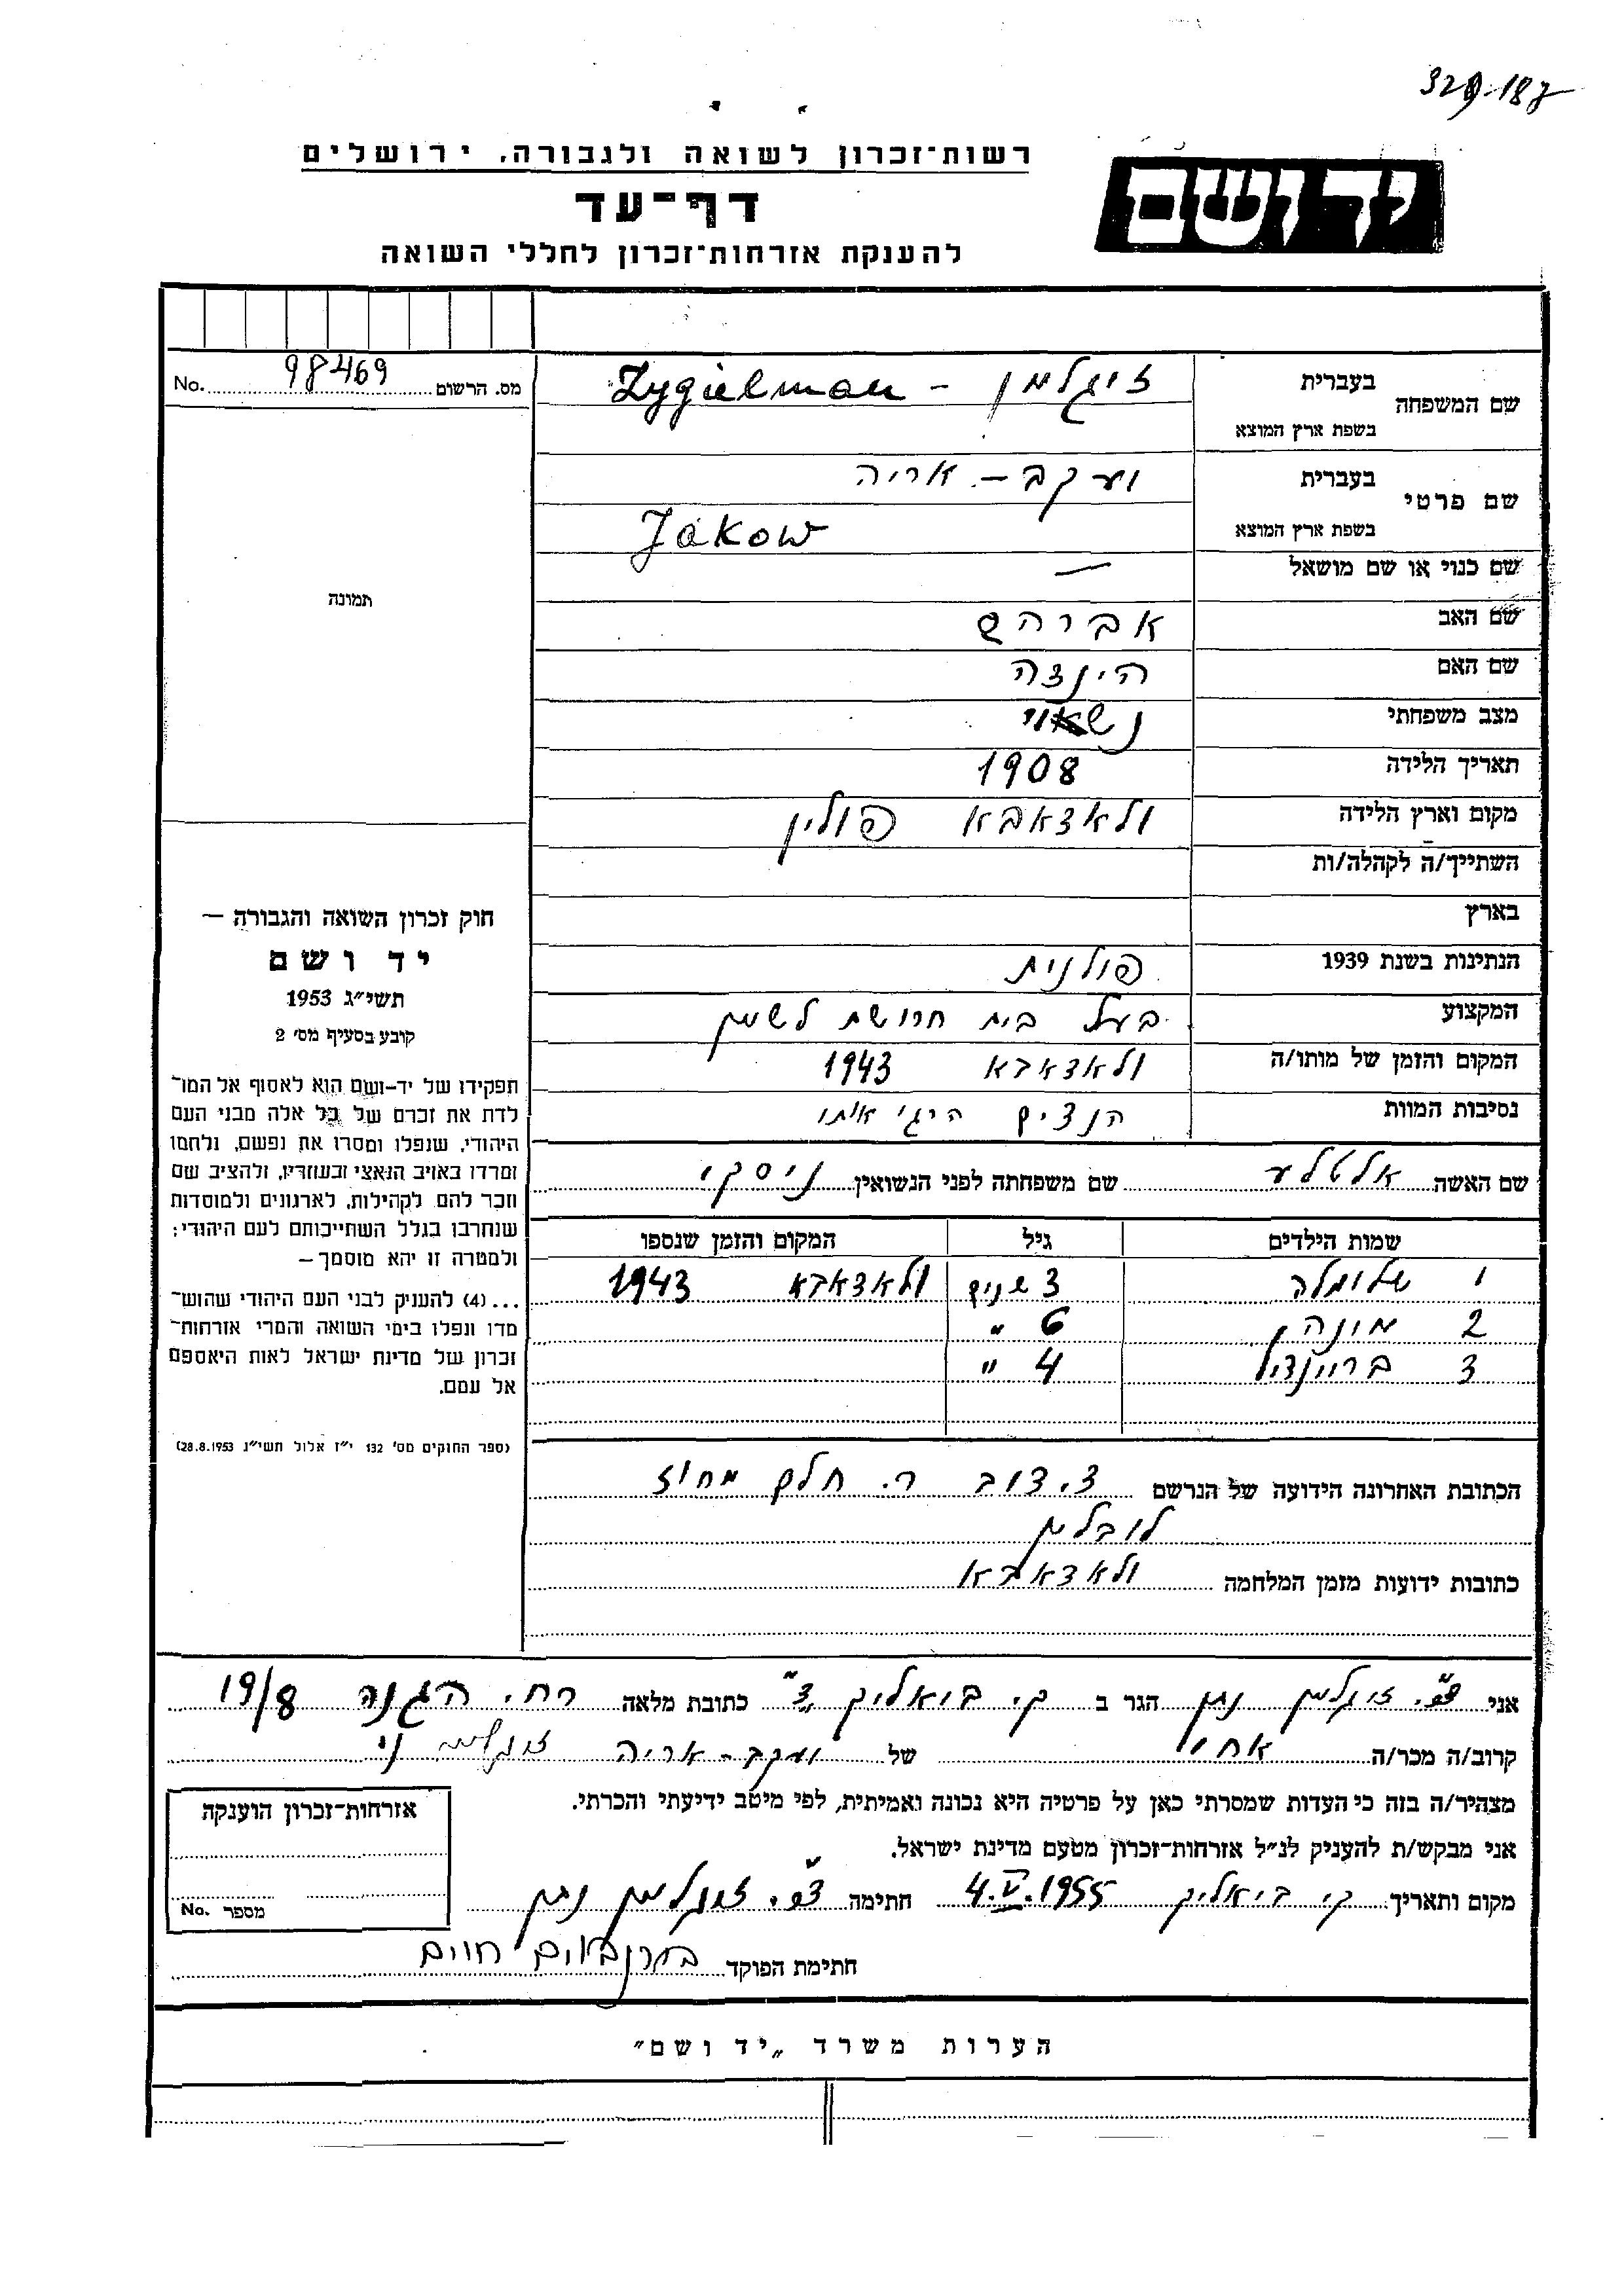 329-187
רשות־זכרון לשואה ולגבורה, ירושלים
יד ושם
דף־עד
להענקת אזרחות־זכרון לחללי השואה
מס. הרשום 98469 No.
שם המשפחה
בעברית זיגלמן - Zygielman
בשפת ארץ המוצא
שם פרטי
בעברית יעקב - אריה
בשפת ארץ המוצא Jakow
שם כנוי או שם מושאל —
שם האב אברהם
שם האם הינצה
מצב משפחתי נשאוי
תאריך הלידה 1908
מקום וארץ הלידה ולאדאבא פולין
השתייך/ה לקהלה/ות
בארץ
הנתינות בשנת 1939 פולנית
המקצוע בעל בית חרושת לשמן
המקום והזמן של מותו/ה ולאדאבא 1943
נסיבות המוות הנצים הרגי אותו
שם האשה אלטלע שם משפחתה לפני הנשואין ניסקי
שמות הילדים גיל המקום והזמן שנספו
1 שלומלה 3 שנים ולאדאבא 1943
2 מונהן 6 "
3 בריינדיל 4 "
הכתובת האחרונה הידועה של הנרשם צ. דוב ר. חלם מחוז
לובלין
כתובות ידועות מזמן המלחמה ולאדאבא
תמונה
חוק זכרון השואה והגבורה —
יד ושם
תשי״ג 1953
קובע בסעיף מס׳ 2
תפקידו של יד-ושם הוא לאסוף אל המו־
לדת את זכרם של כל אלה מבני העם
היהודי, שנפלו ומסרו את נפשם, נלחמו
ומרדו באויב הנאצי ובעוזריו, ולהציב שם
וזכר להם לקהילות, לארגונים ולמוסדות
שנחרבו בגלל השתייכותם לעם היהודי;
ולמטרה זו יהא מוסמך —
...(4) להענין לבני העם היהודי שהוש־
מדו ונפלו בימי השואה והמרי אזרחות־
זכרון של מדינת ישראל לאות היאספם
אל עמם.
(ספר החוקים מס׳ 132 י״ז אלול תשי״ג 28.8.1953)
אני זיגלמן נתן הגר ב ק. ביאליק ד" כתובת מלאה רח. הגנה 19/8
קרוב/ה מכר/ה אחיו של יעקב - אריה זיגלמן
מצהיר/ה בזה כי העדות שמסרתי כאן על פרטיה היא נכונה ואמיתית, לפי מיטב ידיעתי והכרתי.
אני מבקש/ת להעניק לנ״ל אזרחות־זכרון מטעם מדינת ישראל.
מקום ותאריך ק. ביאליק 4.V.1955 חתימה זיגלמן נתן
חתימת הפוקד בירנבוים חיים
אזרחות־זכרון הוענקה
מספר No.
הערות משרד „יד ושם״